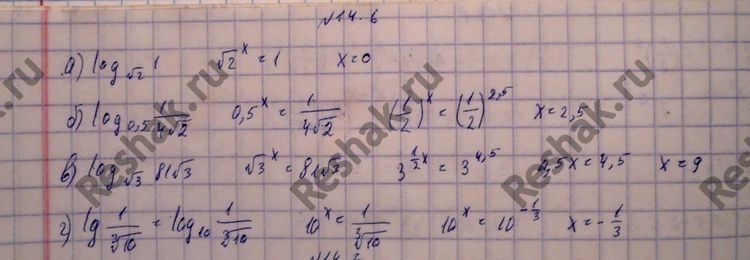 №14.6
а) log_√2 1    √2^x = 1    x = 0
б) log_0,5 1/(4√2)    0,5^x = 1/(4√2)    (1/2)^x = (1/2)^2,5    x = 2,5
в) log_√3 81√3    √3^x = 81√3    3^(1/2 x) = 3^4,5    0,5x = 4,5    x = 9
г) lg 1/∛10 = log_10 1/∛10    10^x = 1/∛10    10^x = 10^(-1/3)    x = -1/3
Reshak.ru
Reshak.ru
Reshak.ru